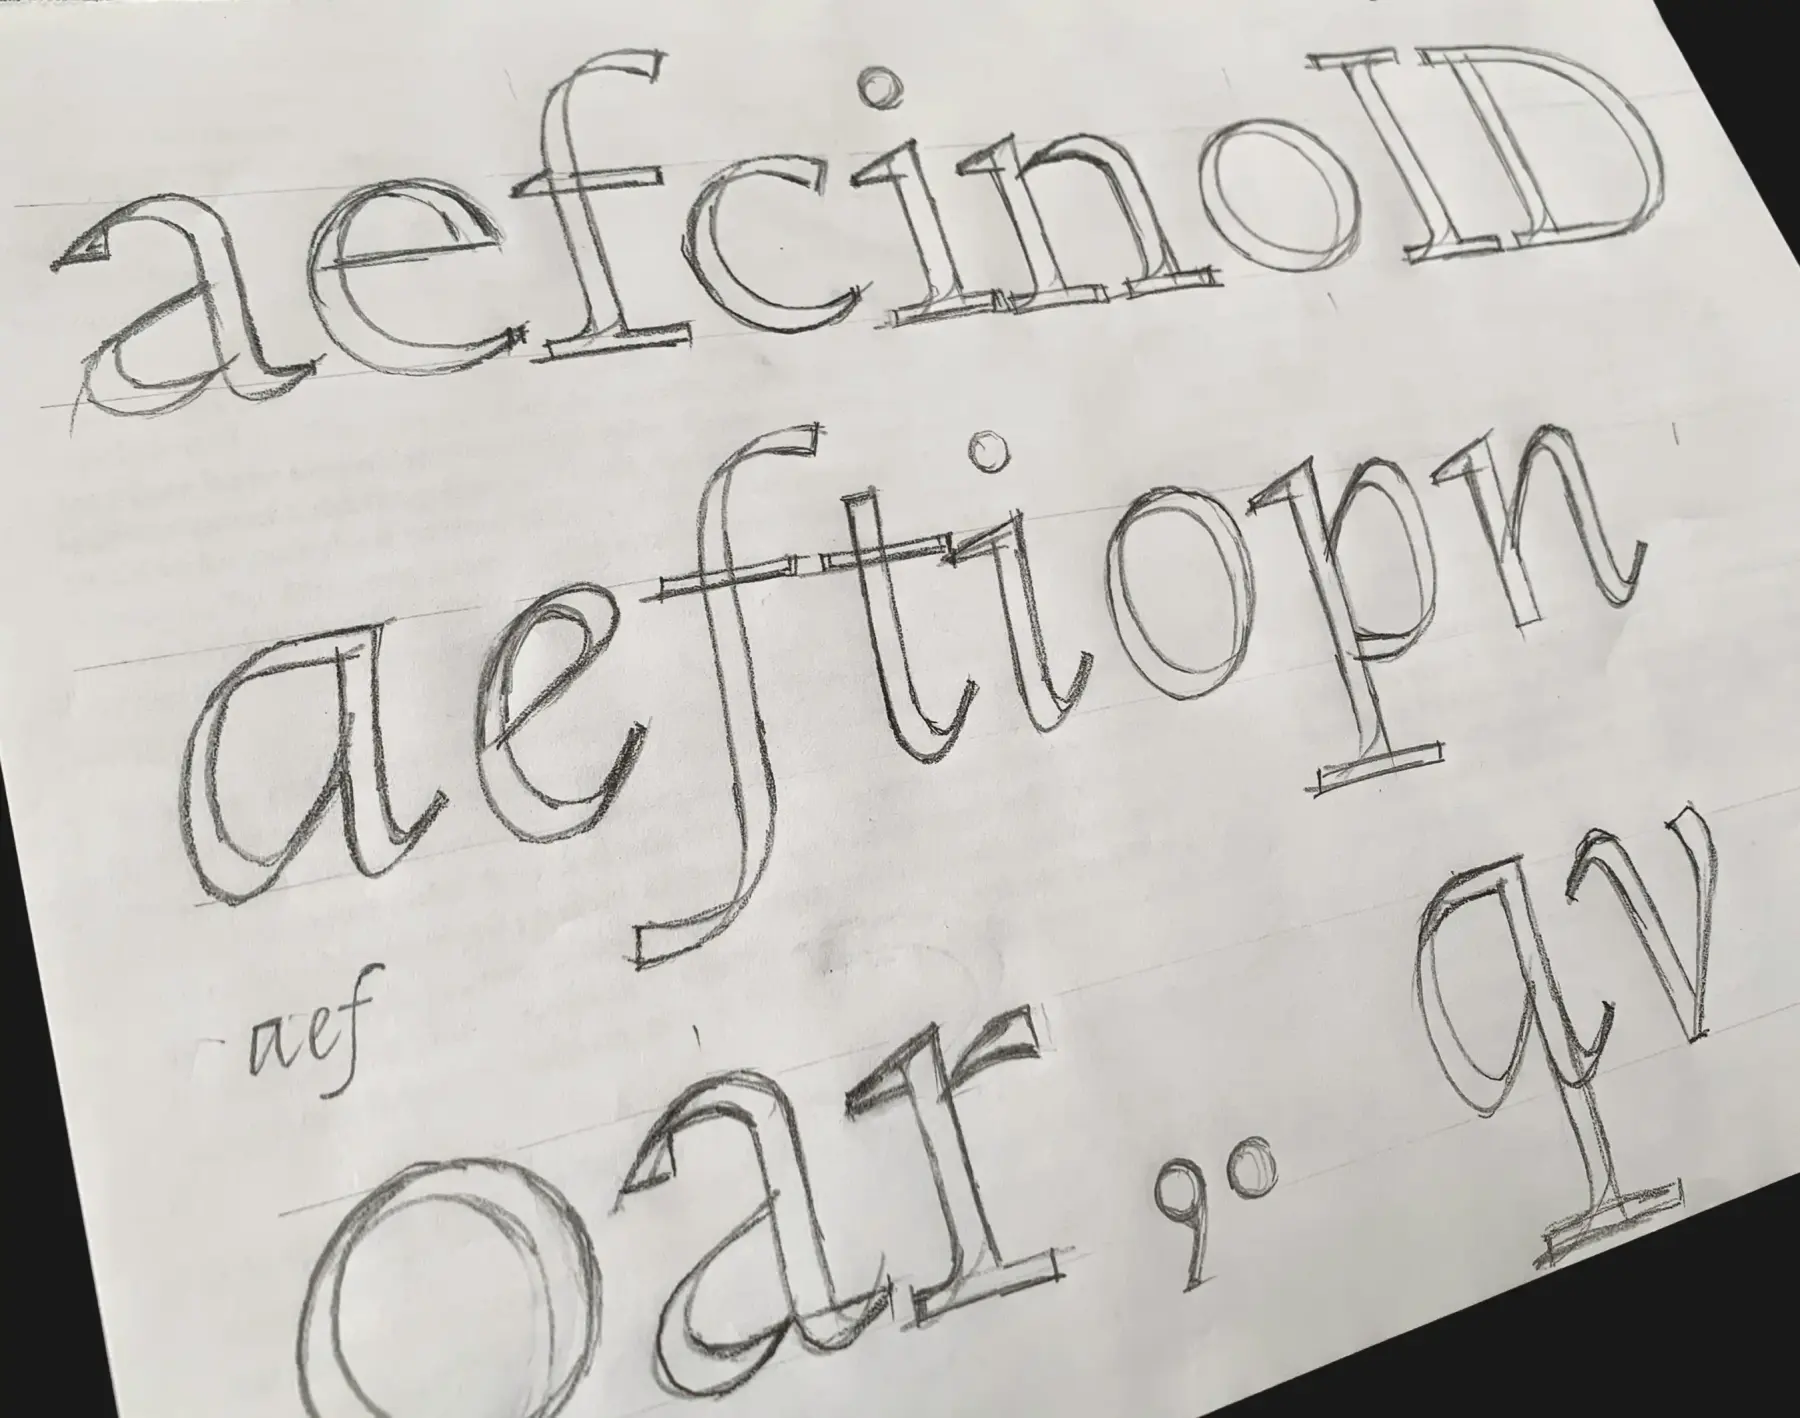 aefcinoID
aeftiopn
aef
oar,. qv